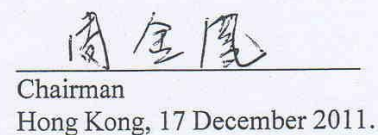 Chairman
Hong Kong, 17 December 2011.